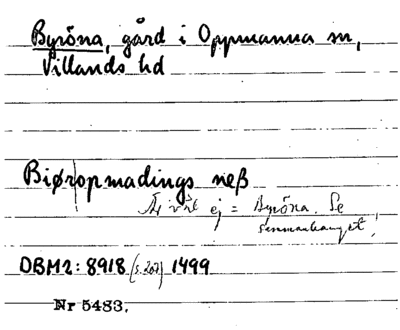 Byröna, gård i Oppmanna sn,
Villands hd
Biøropmadings neß
Är väl ej = Byröna. Se
sammanhanget!
DBM2: 8918 (s. 207) 1499
Nr 5483.